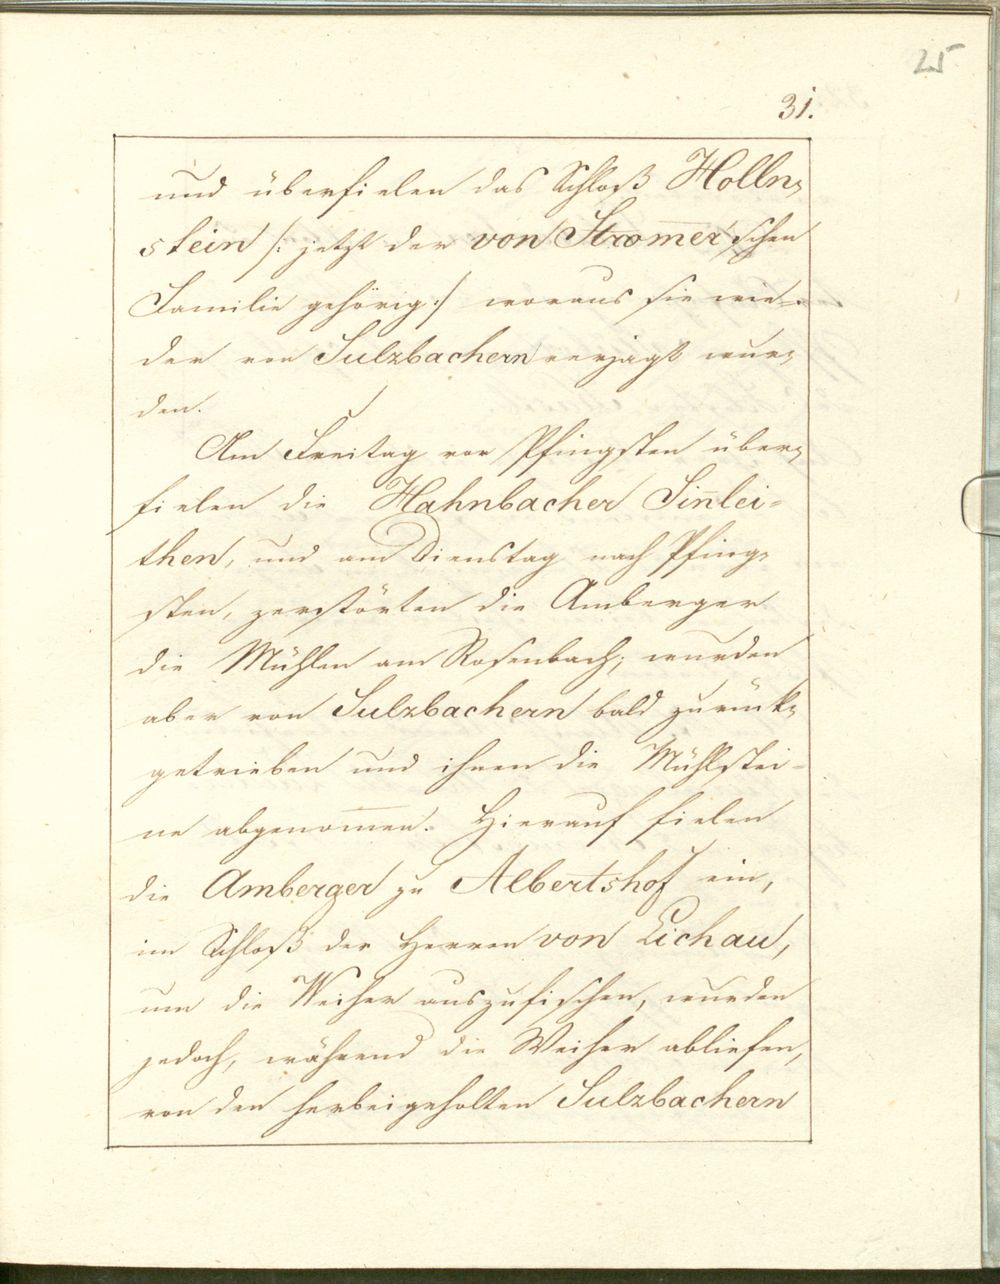 25
31.
und überfielen das Schloß Holln-
stein /: jetzt der von Stromer'schen
Familie gehörig :/ woraus sie wie-
der von Sulzbachern verjagt wur-
den.
Am Freitag vor Pfingsten über-
fielen die Hahnbacher Siñlei-
then, und am Dienstag nach Pfing-
sten, zerstörten die Amberger
die Mühlen am Rosenbach; wurden
aber von Sulzbachern bald zurück-
getrieben und ihnen die Mühlstei-
ne abgenom̄en. Hierauf fielen
die Amberger zu Albertshof ein,
im Schloß der Herren von Lichau,
um die Weiher auszufischen, wurden
jedoch, während die Weiher abliefen,
von den herbeigeholten Sulzbachern